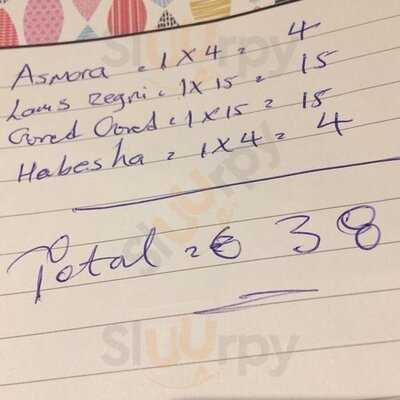 Asmara = 1 X 4 = 4
Lams zegni = 1X 15 = 15
Gored Gored = 1 X 15 = 15
Habesha = 1 X 4 = 4
Total = € 38
Sluurpy
Sluurpy
Sluurpy